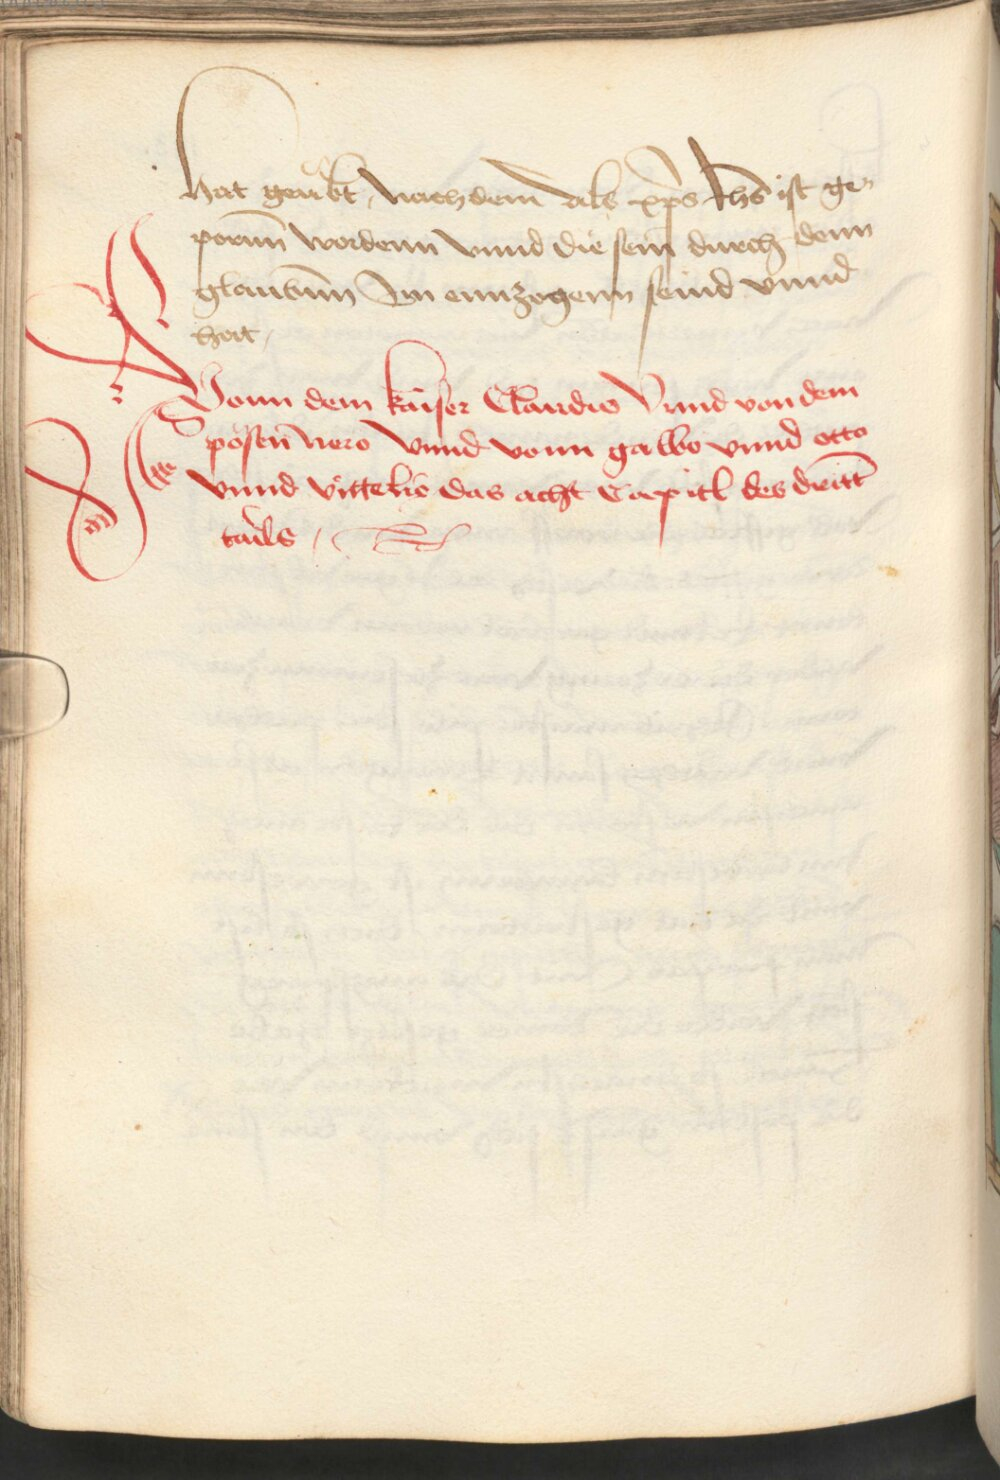 hat geubt, nach dem als xp̄s Jhs̄ ist ge-
porn̄n wordenn vnnd die sein durch denn
glaubn̄n Im einzogenn seind vnnd
hat,
Vonn dem kaiser Claudio Vnnd von dem
posen̄ nero Vnnd vonn galbo vnnd otto
vnnd vittelio das acht Capitl des dritt̄
tails,